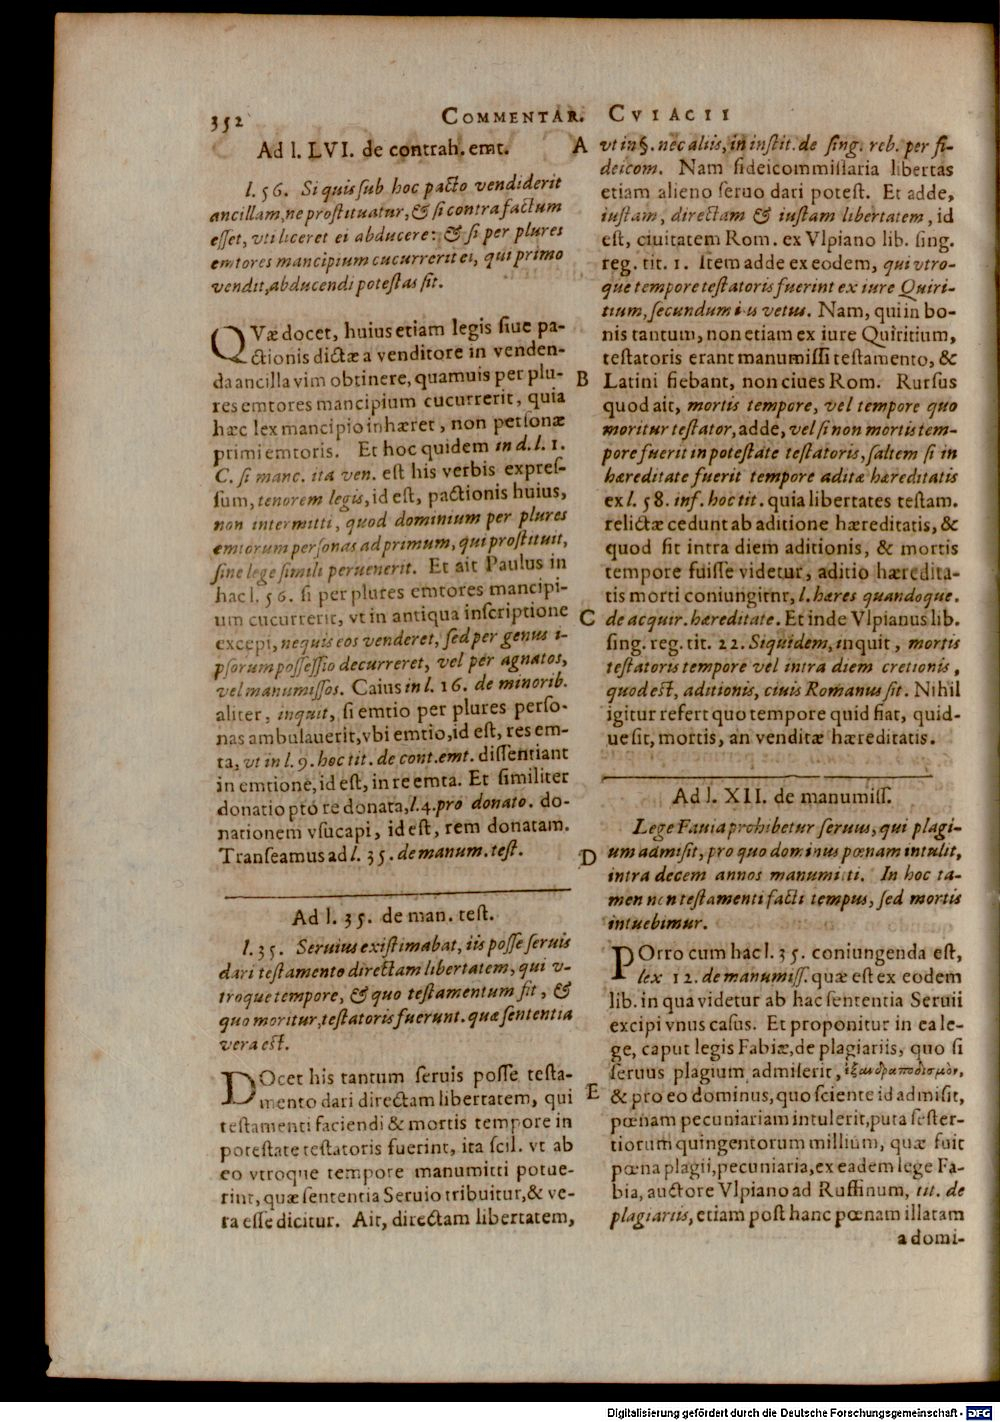 352
COMMENTAR. CVIACII
Ad l. LVI. de contrah. emt.
l. 56. Si quis sub hoc pacto vendiderit
ancillam, ne prostituatur, & si contra factum
esset, vti liceret ei abducere: & si per plures
emtores mancipium cucurrerit ei, qui primo
vendit, abducendi potestas sit.
QVæ docet, huius etiam legis siue pa-
ctionis dictæ a venditore in venden-
da ancilla vim obtinere, quamuis per plu-
res emtores mancipium cucurrerit, quia
hæc lex mancipio inhæret, non personæ
primi emtoris. Et hoc quidem in d. l. 1.
C. si manc. ita ven. est his verbis expres-
sum, tenorem legis, id est, pactionis huius,
non intermitti, quod dominium per plures
emtorum personas ad primum, qui prostituit,
sine lege simili peruenerit. Et ait Paulus in
hac l. 56. si per plures emtores mancipi-
um cucurrerit, vt in antiqua inscriptione
excepi, nequis eos venderet, sed per genus i-
psorum possessio decurreret, vel per agnatos,
vel manumissos. Caius in l. 16. de minorib.
aliter, inquit, si emtio per plures perso-
nas ambulauerit, vbi emtio, id est, res em-
ta, vt in l. 9. hoc tit. de cont. emt. dissentiant
in emtione, id est, in re emta. Et similiter
donatio pro re donata, l. 4. pro donato. do-
nationem vsucapi, id est, rem donatam.
Transeamus ad l. 35. de manum. test.
Ad l. 35. de man. test.
l. 35. Seruius existimabat, iis posse seruis
dari testamento directam libertatem, qui v-
troque tempore, & quo testamentum fit, &
quo moritur, testatoris fuerunt. quæ sententia
vera est.
DOcet his tantum seruis posse testa-
mento dari directam libertatem, qui
testamenti faciendi & mortis tempore in
potestate testatoris fuerint, ita scil. vt ab
eo vtroque tempore manumitti potue-
rint, quæ sententia Seruio tribuitur, & ve-
ra esse dicitur. Ait, directam libertatem,
A vt in §. nec aliis, in instit. de sing. reb. per fi-
deicom. Nam fideicommissaria libertas
etiam alieno seruo dari potest. Et adde,
iustam, directam & iustam libertatem, id
est, ciuitatem Rom. ex Vlpiano lib. sing.
reg. tit. 1. Item adde ex eodem, qui vtro-
que tempore testatoris fuerint ex iure Quiri-
tium, secundum ius vetus. Nam, qui in bo-
nis tantum, non etiam ex iure Quiritium,
testatoris erant manumissi testamento, &
B Latini fiebant, non ciues Rom. Rursus
quod ait, mortis tempore, vel tempore quo
moritur testator, adde, vel si non mortis tem-
pore fuerit in potestate testatoris, saltem si in
hæreditate fuerit tempore aditæ hæreditatis
ex l. 58. inf. hoc tit. quia libertates testam.
relictæ cedunt ab aditione hæreditatis, &
quod fit intra diem aditionis, & mortis
tempore fuisse videtur, aditio hæredita-
tis morti coniungitur, l. hæres quandoque.
C de acquir. hæreditate. Et inde Vlpianus lib.
sing. reg. tit. 22. Siquidem, inquit, mortis
testatoris tempore vel intra diem cretionis,
quod est, aditionis, ciuis Romanus sit. Nihil
igitur refert quo tempore quid fiat, quid-
ue sit, mortis, an venditæ hæreditatis.
Ad l. XII. de manumiss.
Lege Fauia prohibetur seruus, qui plagi-
D um admisit, pro quo dominus pœnam intulit,
intra decem annos manumitti. In hoc ta-
men non testamenti facti tempus, sed mortis
intuebimur.
POrro cum hac l. 35. coniungenda est,
lex 12. de manumiss. quæ est ex eodem
lib. in qua videtur ab hac sententia Seruii
excipi vnus casus. Et proponitur in ea le-
ge, caput legis Fabiæ, de plagiariis, quo si
seruus plagium admiserit, ἐξανδραποδισμὸν,
E & pro eo dominus, quo sciente id admisit,
pœnam pecuniariam intulerit, puta sester-
tiorum quingentorum millium, quæ fuit
pœna plagii, pecuniaria, ex eadem lege Fa-
bia, auctore Vlpiano ad Ruffinum, tit. de
plagiariis, etiam post hanc pœnam illatam
a domi-
Digitalisierung gefördert durch die Deutsche Forschungsgemeinschaft - DFG